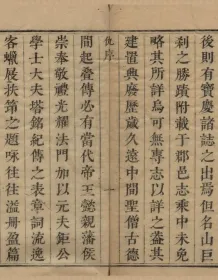 後則有寶慶諸誌之出焉但名山巨
刹之勝蹟附載于郡邑志乘中未免
略其所詳烏可無專志以詳之葢其
建置興廢歷歲久遠中間聖僧古德
仇序
間起叠傳必有當代帝王懿親藩侯
崇奉敬禮光耀法門加以元夫鉅公
學士大夫塔銘紀傳之表章詞流逸
客蠟屐扶筇之題咏往往溢册盈篇